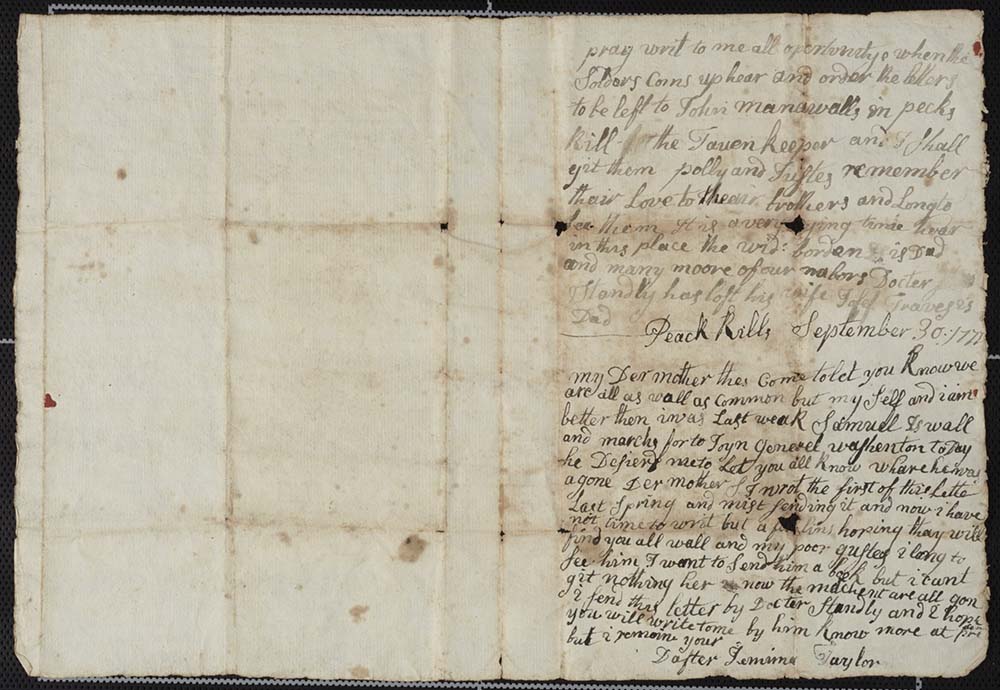 pray writ to me all oportunitys when the
Soldors Coms up hear and order the letters
to be left to John manawalls in pecks
kill the Tauen keeper and I Shall
git them polly and Justes remember
thair Love to theair brothers and Long to
See them it is a very dying time hear
in this place the wid: borden is Dad
and many moore of our nabors Docter
Standly has lost his wife Traves is
Dad
Peack kills September 30: 177
my Der mother thes Come to let you know we
are all as wall as Common but my Self and i am
better then i was Last weak Samuel Is wall
and marchs for to Joyn Generel washenton to Day
he Desierd me to Let you all know whare he was
a gone Der mother I wrot the first of this Lette
Last Spring and mist sending it and now i have
not time to writ but a few lins hoping thay will
find you all wall and my poor gustes i long to
See him I want to Send him a book but i cant
git nothing her now the machent are all gon
i send this letter by Docter Standly and I hope
you will write to me by him know more at pre
but i remaine your
Dafter Jemima Taylor